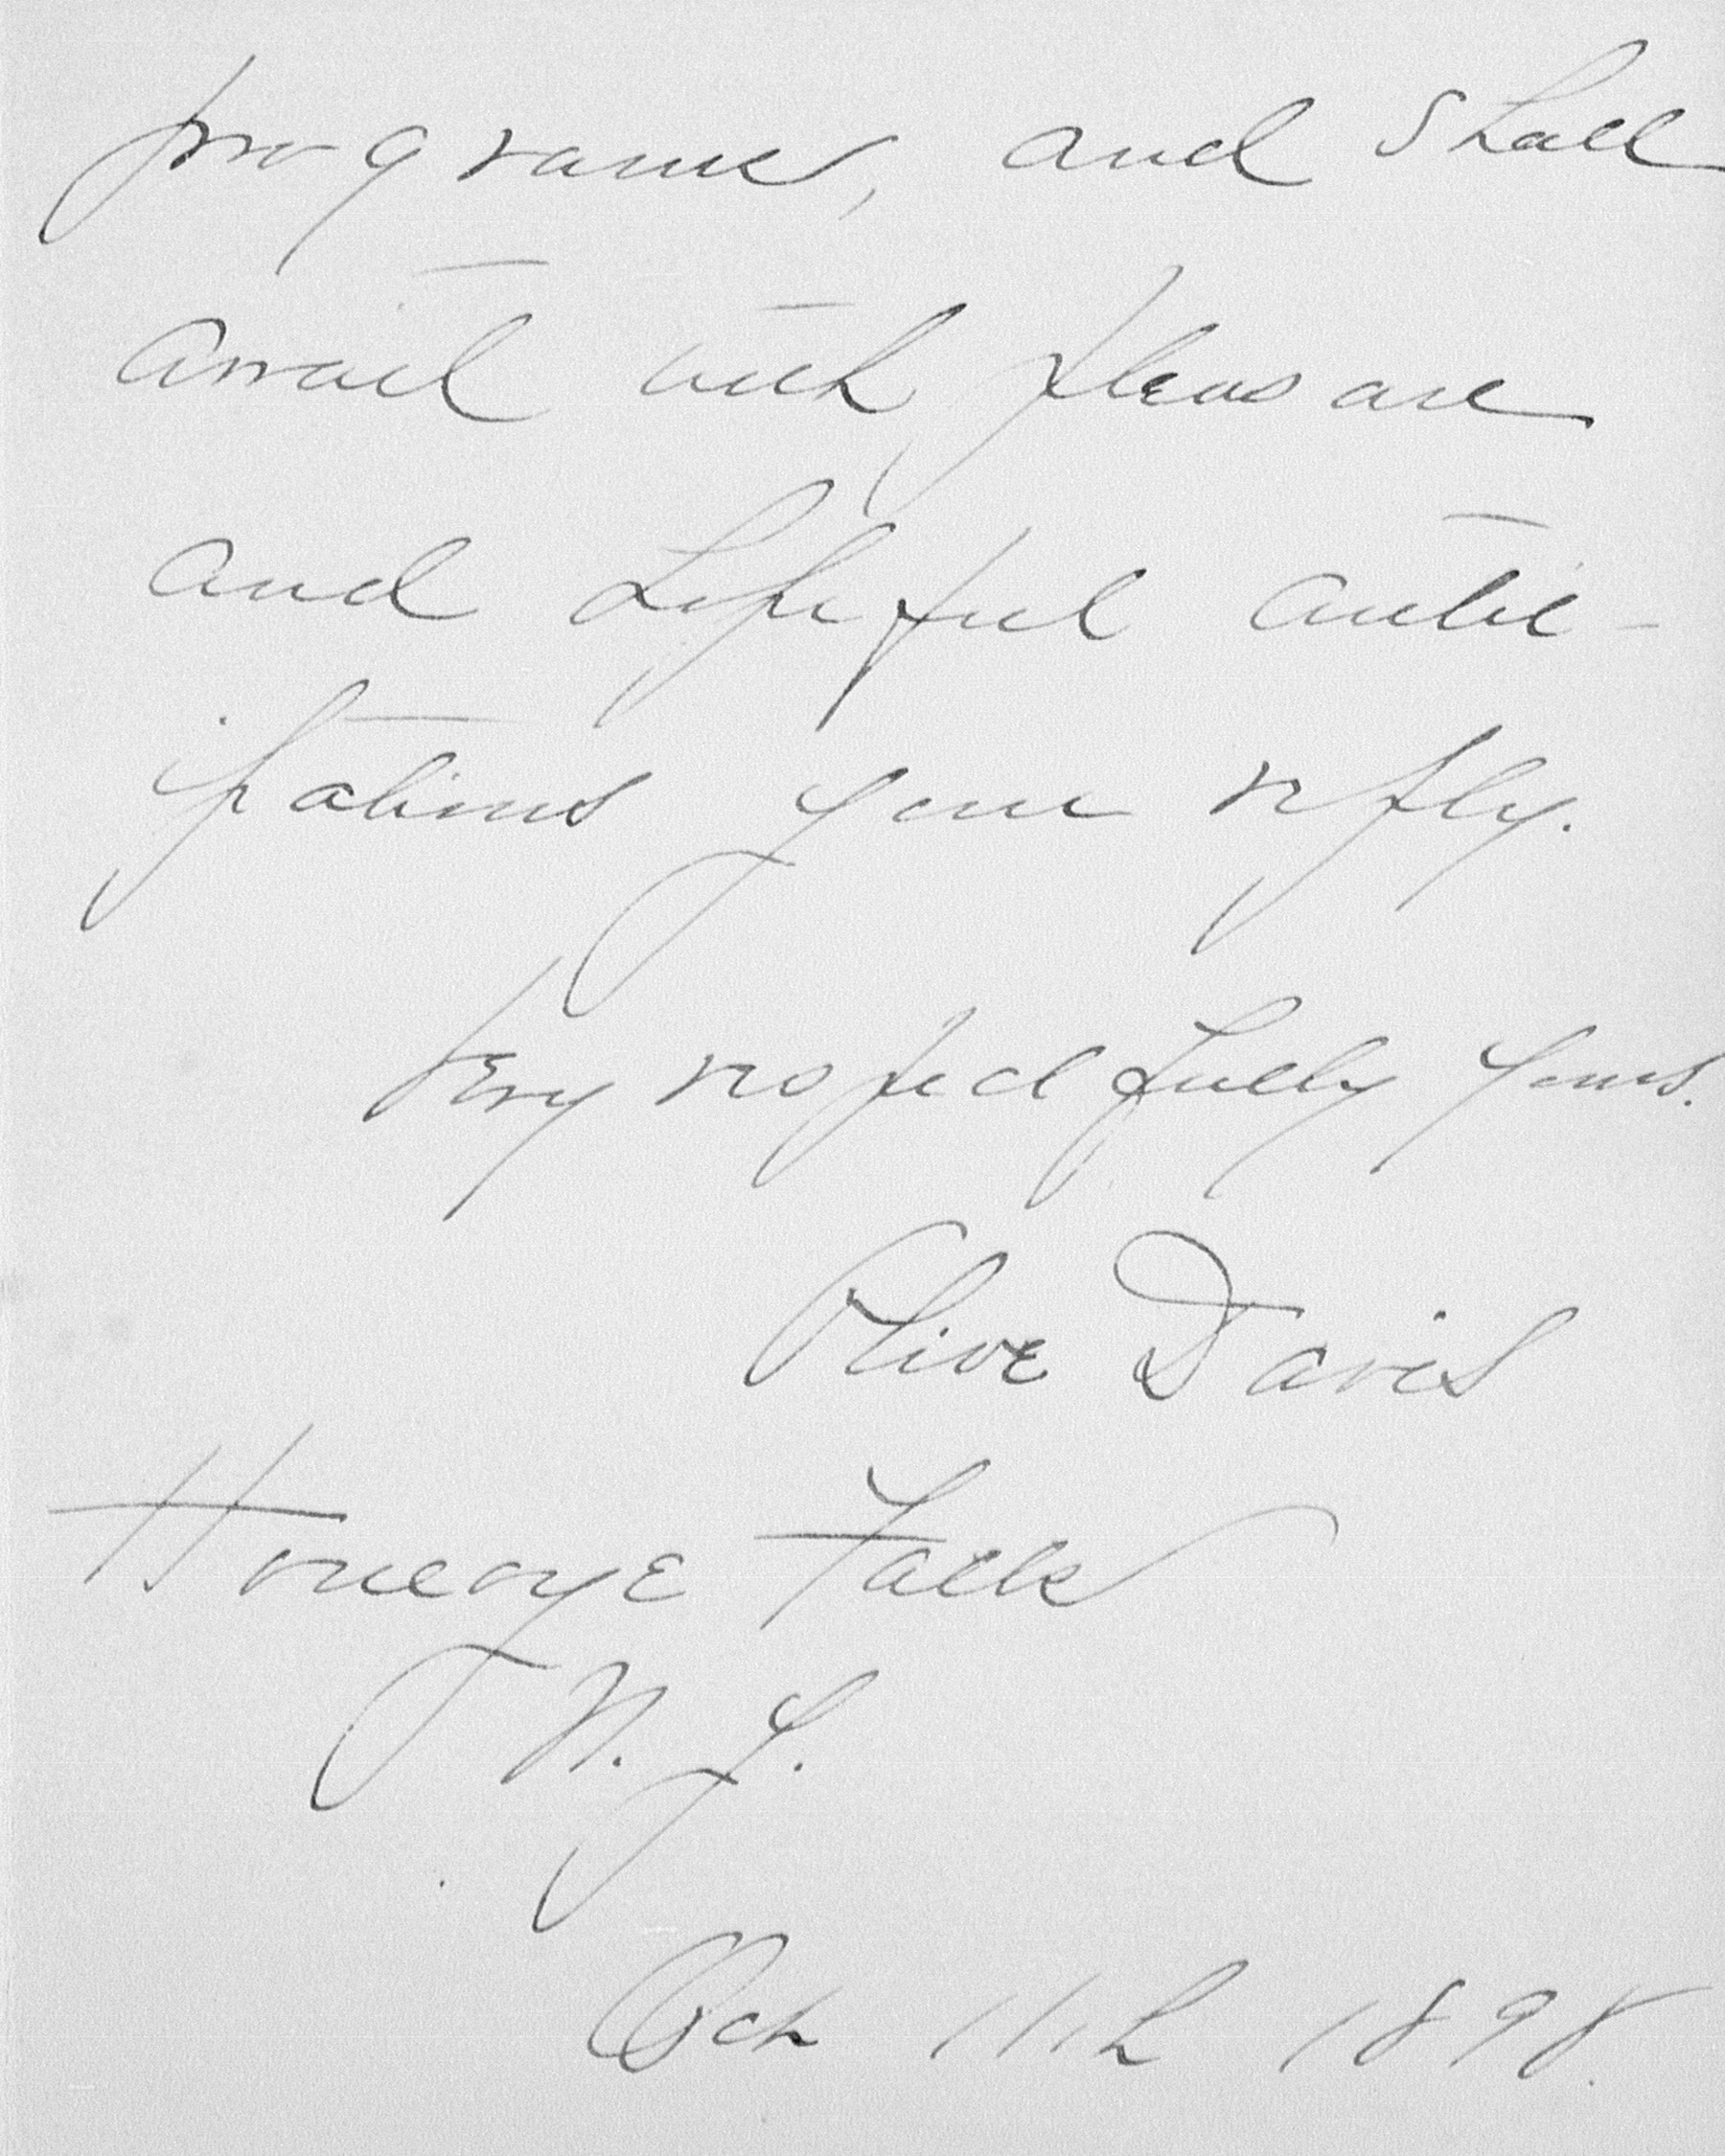 programs, and shall
await with pleasure
and hopeful antic-
ipations your reply.
Very respectfully yours.
Olive Davis
Honeoye Falls
N. Y.
Oct 11th 1898.